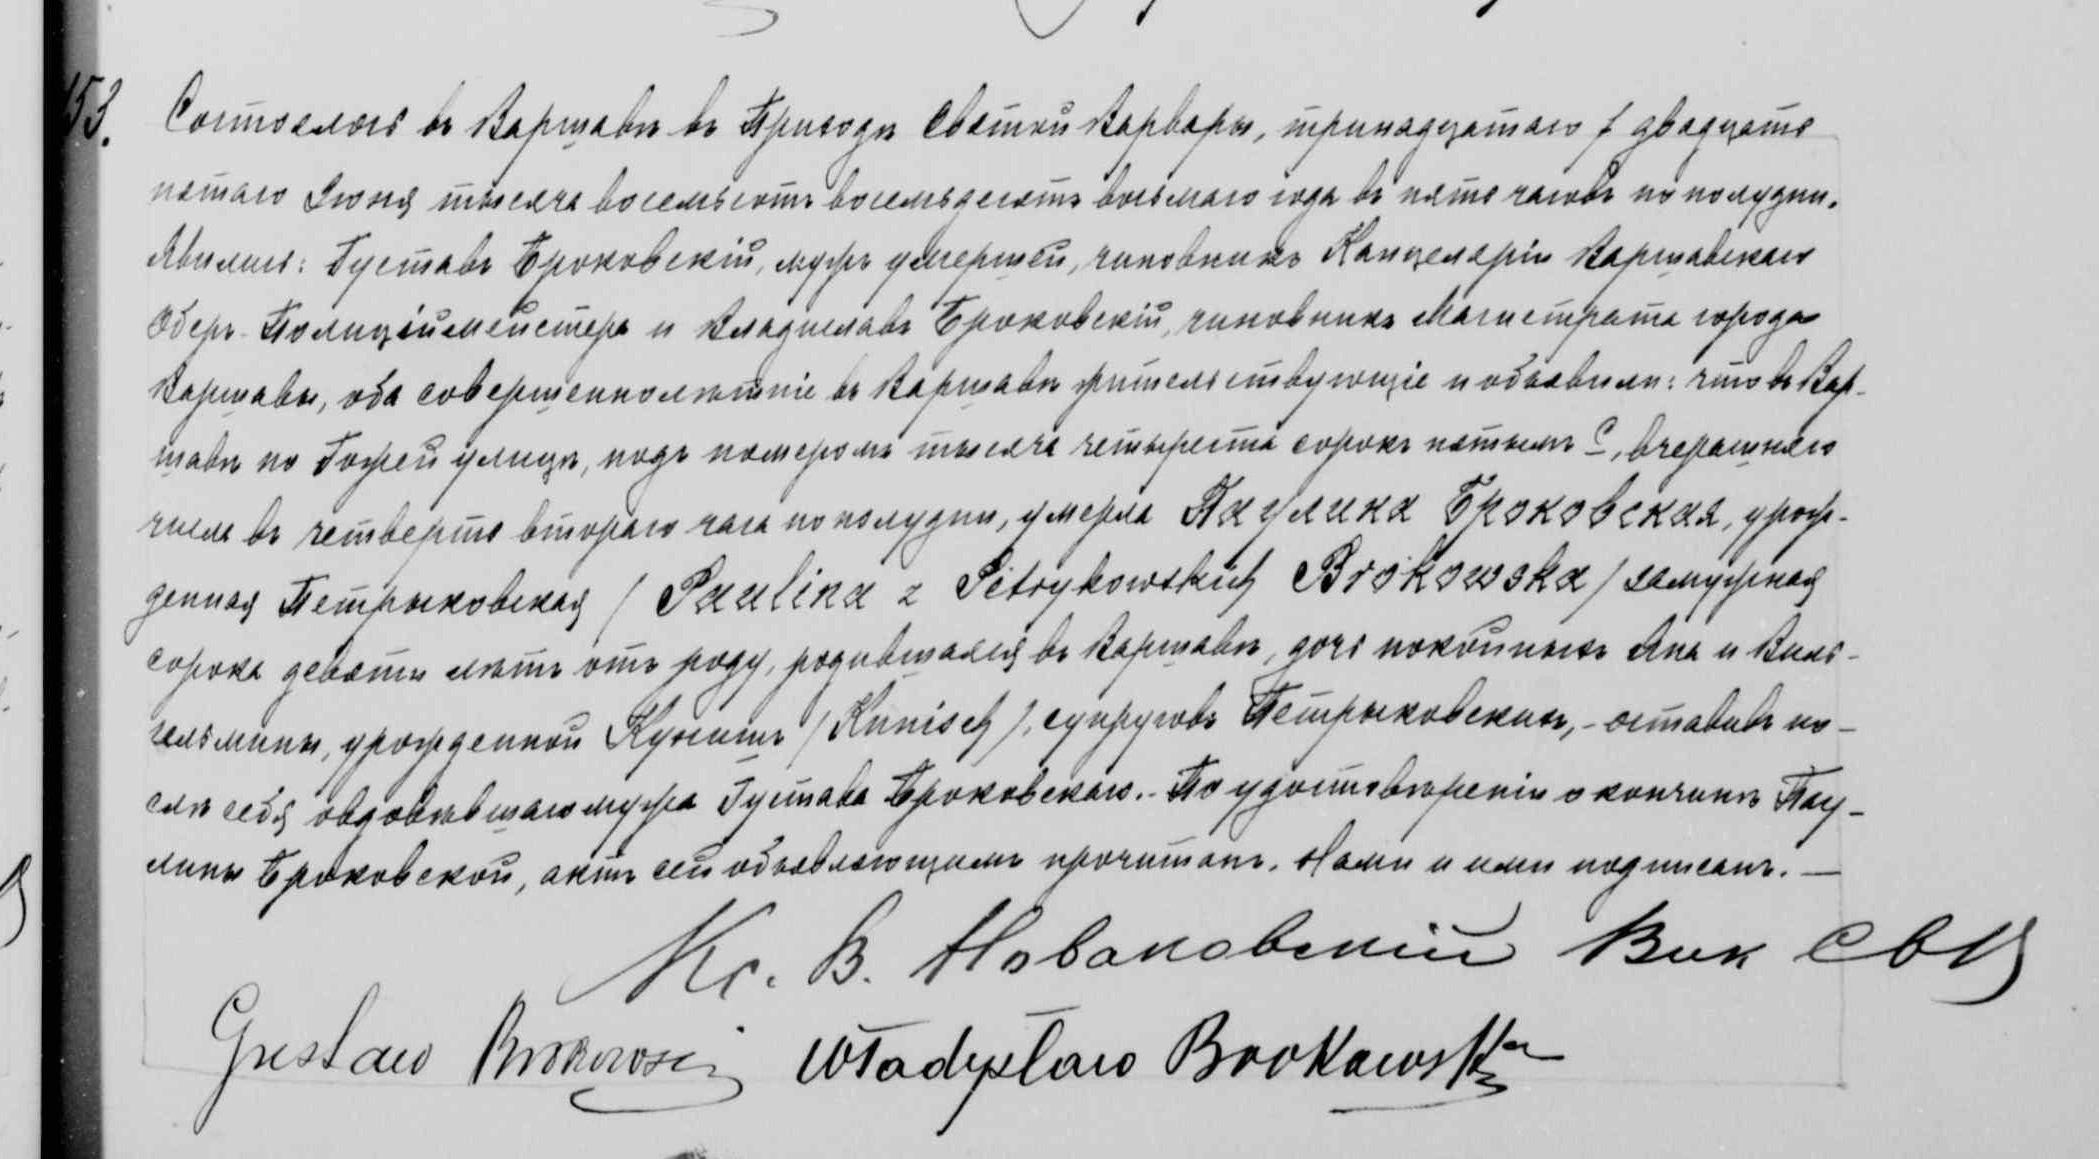 153.
Состоялось въ Варшавѣ въ Приходѣ Святой Варвары, тринадцатаго / двадцать
пятаго Іюня тысяча восемьсотъ восемьдесятъ восьмаго года въ пять часовъ по полудни.
Явились: Густавъ Броковскій, мужъ умершей, чиновникъ Канцеляріи Варшавскаго
Оберъ-Полиціймейстера и Владиславъ Броковскій, чиновникъ Магистрата города
Варшавы, оба совершеннолѣтніе въ Варшавѣ жительствующіе и объявили: что въ Вар-
шавѣ по Гожей улицѣ, подъ номеромъ тысяча четыреста сорокъ пятымъ С, вчерашняго
числа въ четверть втораго часа по полудни, умерла Паулина Броковская, урож-
денная Петрыковская / Paulina z Petrykowskich Brokowska / замужная
сорока девяти лѣтъ отъ роду, родившаяся въ Варшавѣ, дочь покойныхъ Яна и Виль-
гельмины, урожденной Кунишъ / Kunisch /, супруговъ Петрыковскихъ, - оставивъ по-
слѣ себя овдовѣвшаго мужа Густава Броковскаго. - По удостовѣреніи о кончинѣ Пау-
лины Броковской, актъ сей объявляющимъ прочитанъ. Нами и ими подписанъ. —
Кс. В. Новаковскій Вик
Gustaw Brokowski Władysław Brokowski